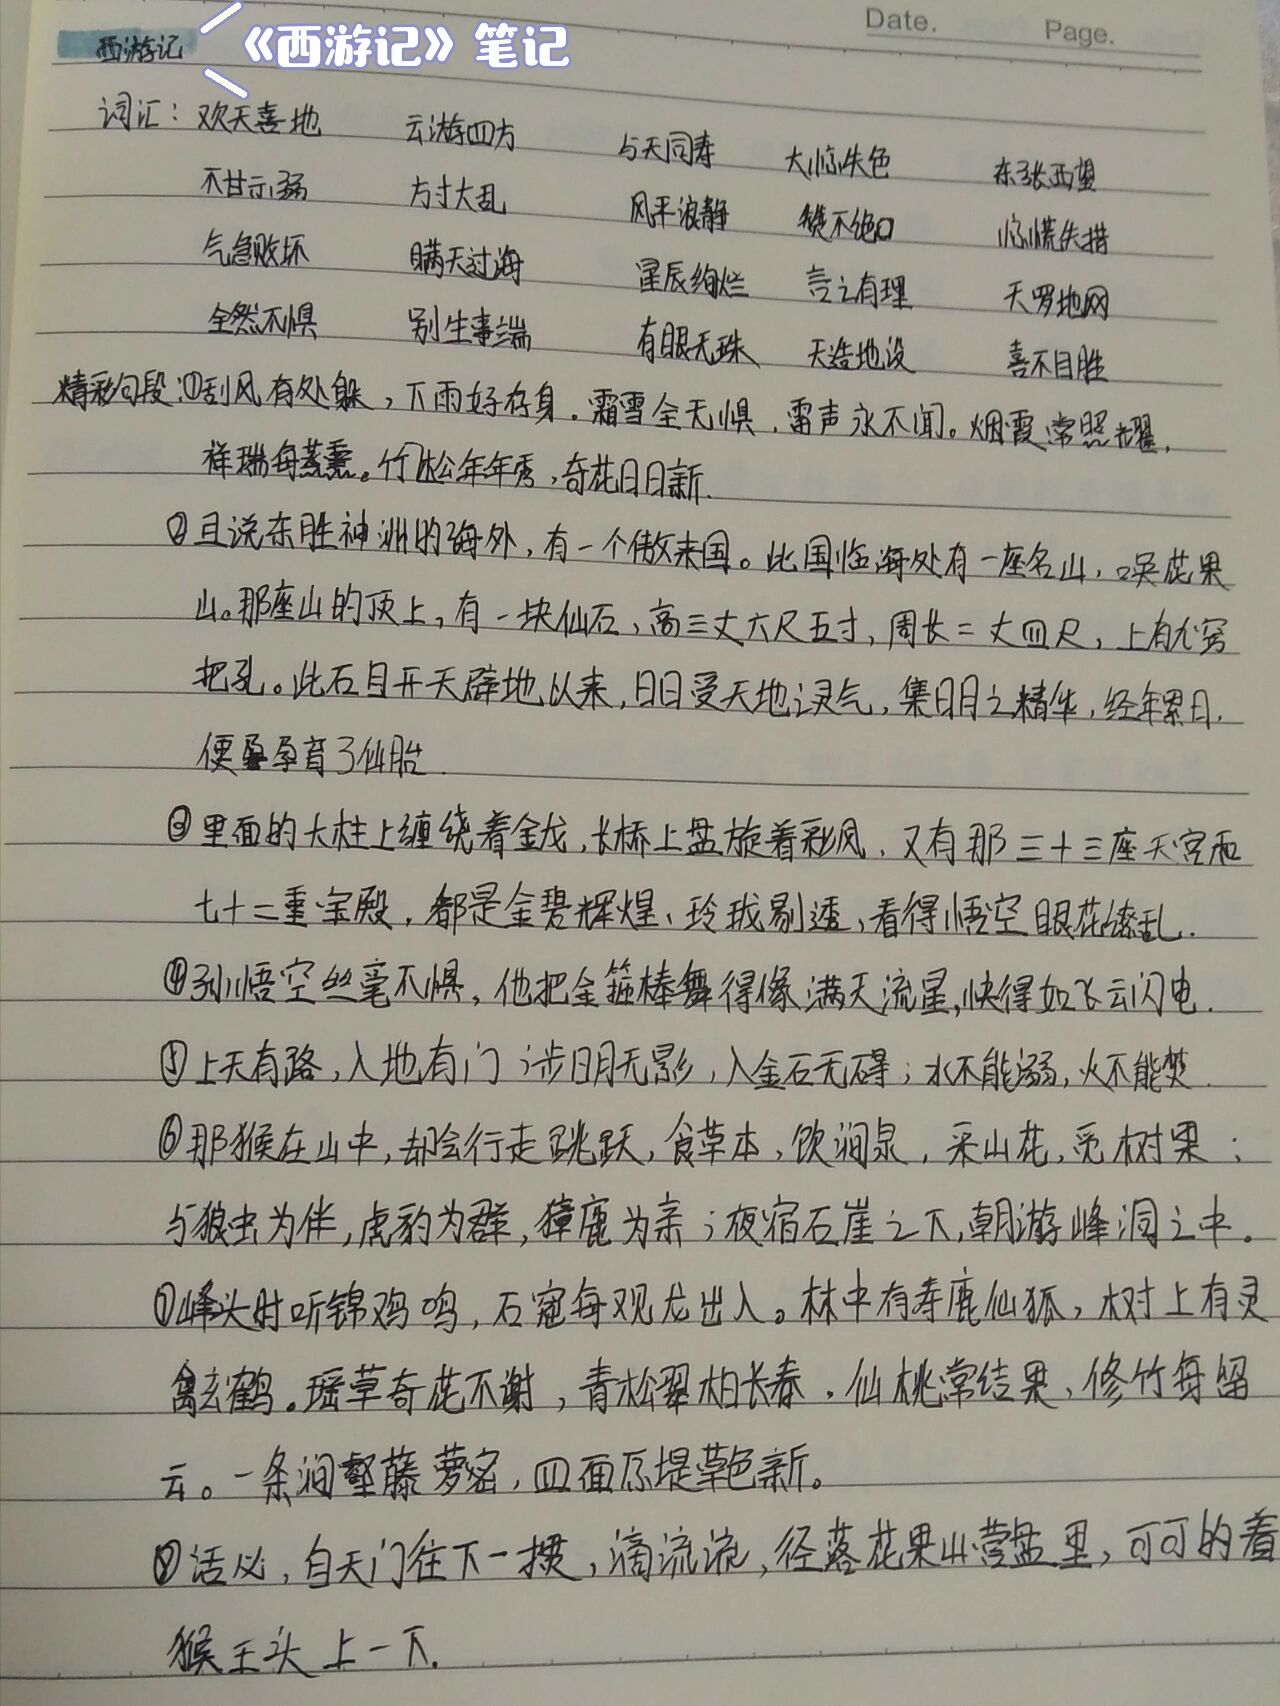 Date.
Page.
西游记
《西游记》笔记
词汇：欢天喜地 云游四方 与天同寿 大惊失色 东张西望
不甘示弱 方寸大乱 风平浪静 赞不绝口 惊慌失措
气急败坏 瞒天过海 星辰绚烂 言之有理 天罗地网
全然不惧 别生事端 有眼无珠 天造地设 喜不自胜
精彩句段：①刮风有处躲，下雨好存身。霜雪全无惧，雷声永不闻。烟霞常照耀，
祥瑞每蒸熏。竹松年年秀，奇花日日新.
②且说东胜神洲的海外，有一个傲来国。此国临海处有一座名山，唤花果
山。那座山的顶上，有一块仙石，高三丈六尺五寸，周长二丈四尺，上有九窍
把孔。此石自开天辟地以来，日日受天地灵气，集日月之精华，经年累日，
便孕育了仙胎.
③里面的大柱上缠绕着金龙，长桥上盘旋着彩凤，又有那三十三座天宫和
七十二重宝殿，都是金碧辉煌、玲珑剔透，看得悟空眼花缭乱.
④孙悟空丝毫不惧，他把金箍棒舞得像满天流星，快得如飞云闪电.
⑤上天有路，入地有门；涉日月无影，入金石无碍；水不能溺，火不能焚.
⑥那猴在山中，却会行走跳跃，食草木，饮涧泉，采山花，觅树果；
与狼虫为伴，虎豹为群，獐鹿为亲；夜宿石崖之下，朝游峰洞之中。
⑦峰头时听锦鸡鸣，石窟每观龙出入。林中有寿鹿仙狐，树上有灵
禽玄鹤。瑶草奇花不谢，青松翠柏长春，仙桃常结果，修竹每留
云。一条涧壑藤萝密，四面原堤草色新。
⑧话必，自天门往下一掼，滴流流，径落花果山营盘里，可可的着
猴王头上一下.